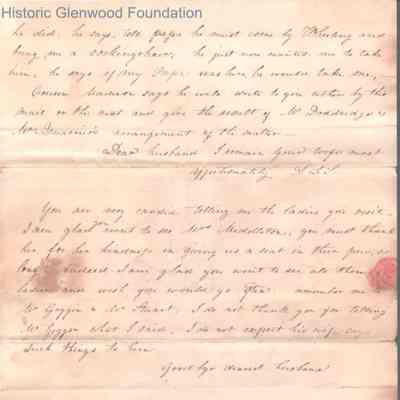 Historic Glenwood Foundation
he did. he says, tell papa he must come by Wheeling and
bring me a rockinghorse, he just now wanted me to take
him, he says if my Papa was here he would take me,
Cousin says he will write to you either by this
mail or the next and give the result of Mr Doddridge &
arrangement of the matter.
Dear husband I remain your wife most
affectionately
You are very candid telling me the ladies you visit.
I am glad you went to see Mrs Middleton, you must thank
her for her kindness in giving us a seat in their pew, so
long. indeed I am glad you went to see all them
ladies and wish you would go often remember me
to Goggin & Mr Stuart, I do not thank you for telling
Mr Goggin what I said. I do not expect his wife says
such things to him
Good bye dearest husband